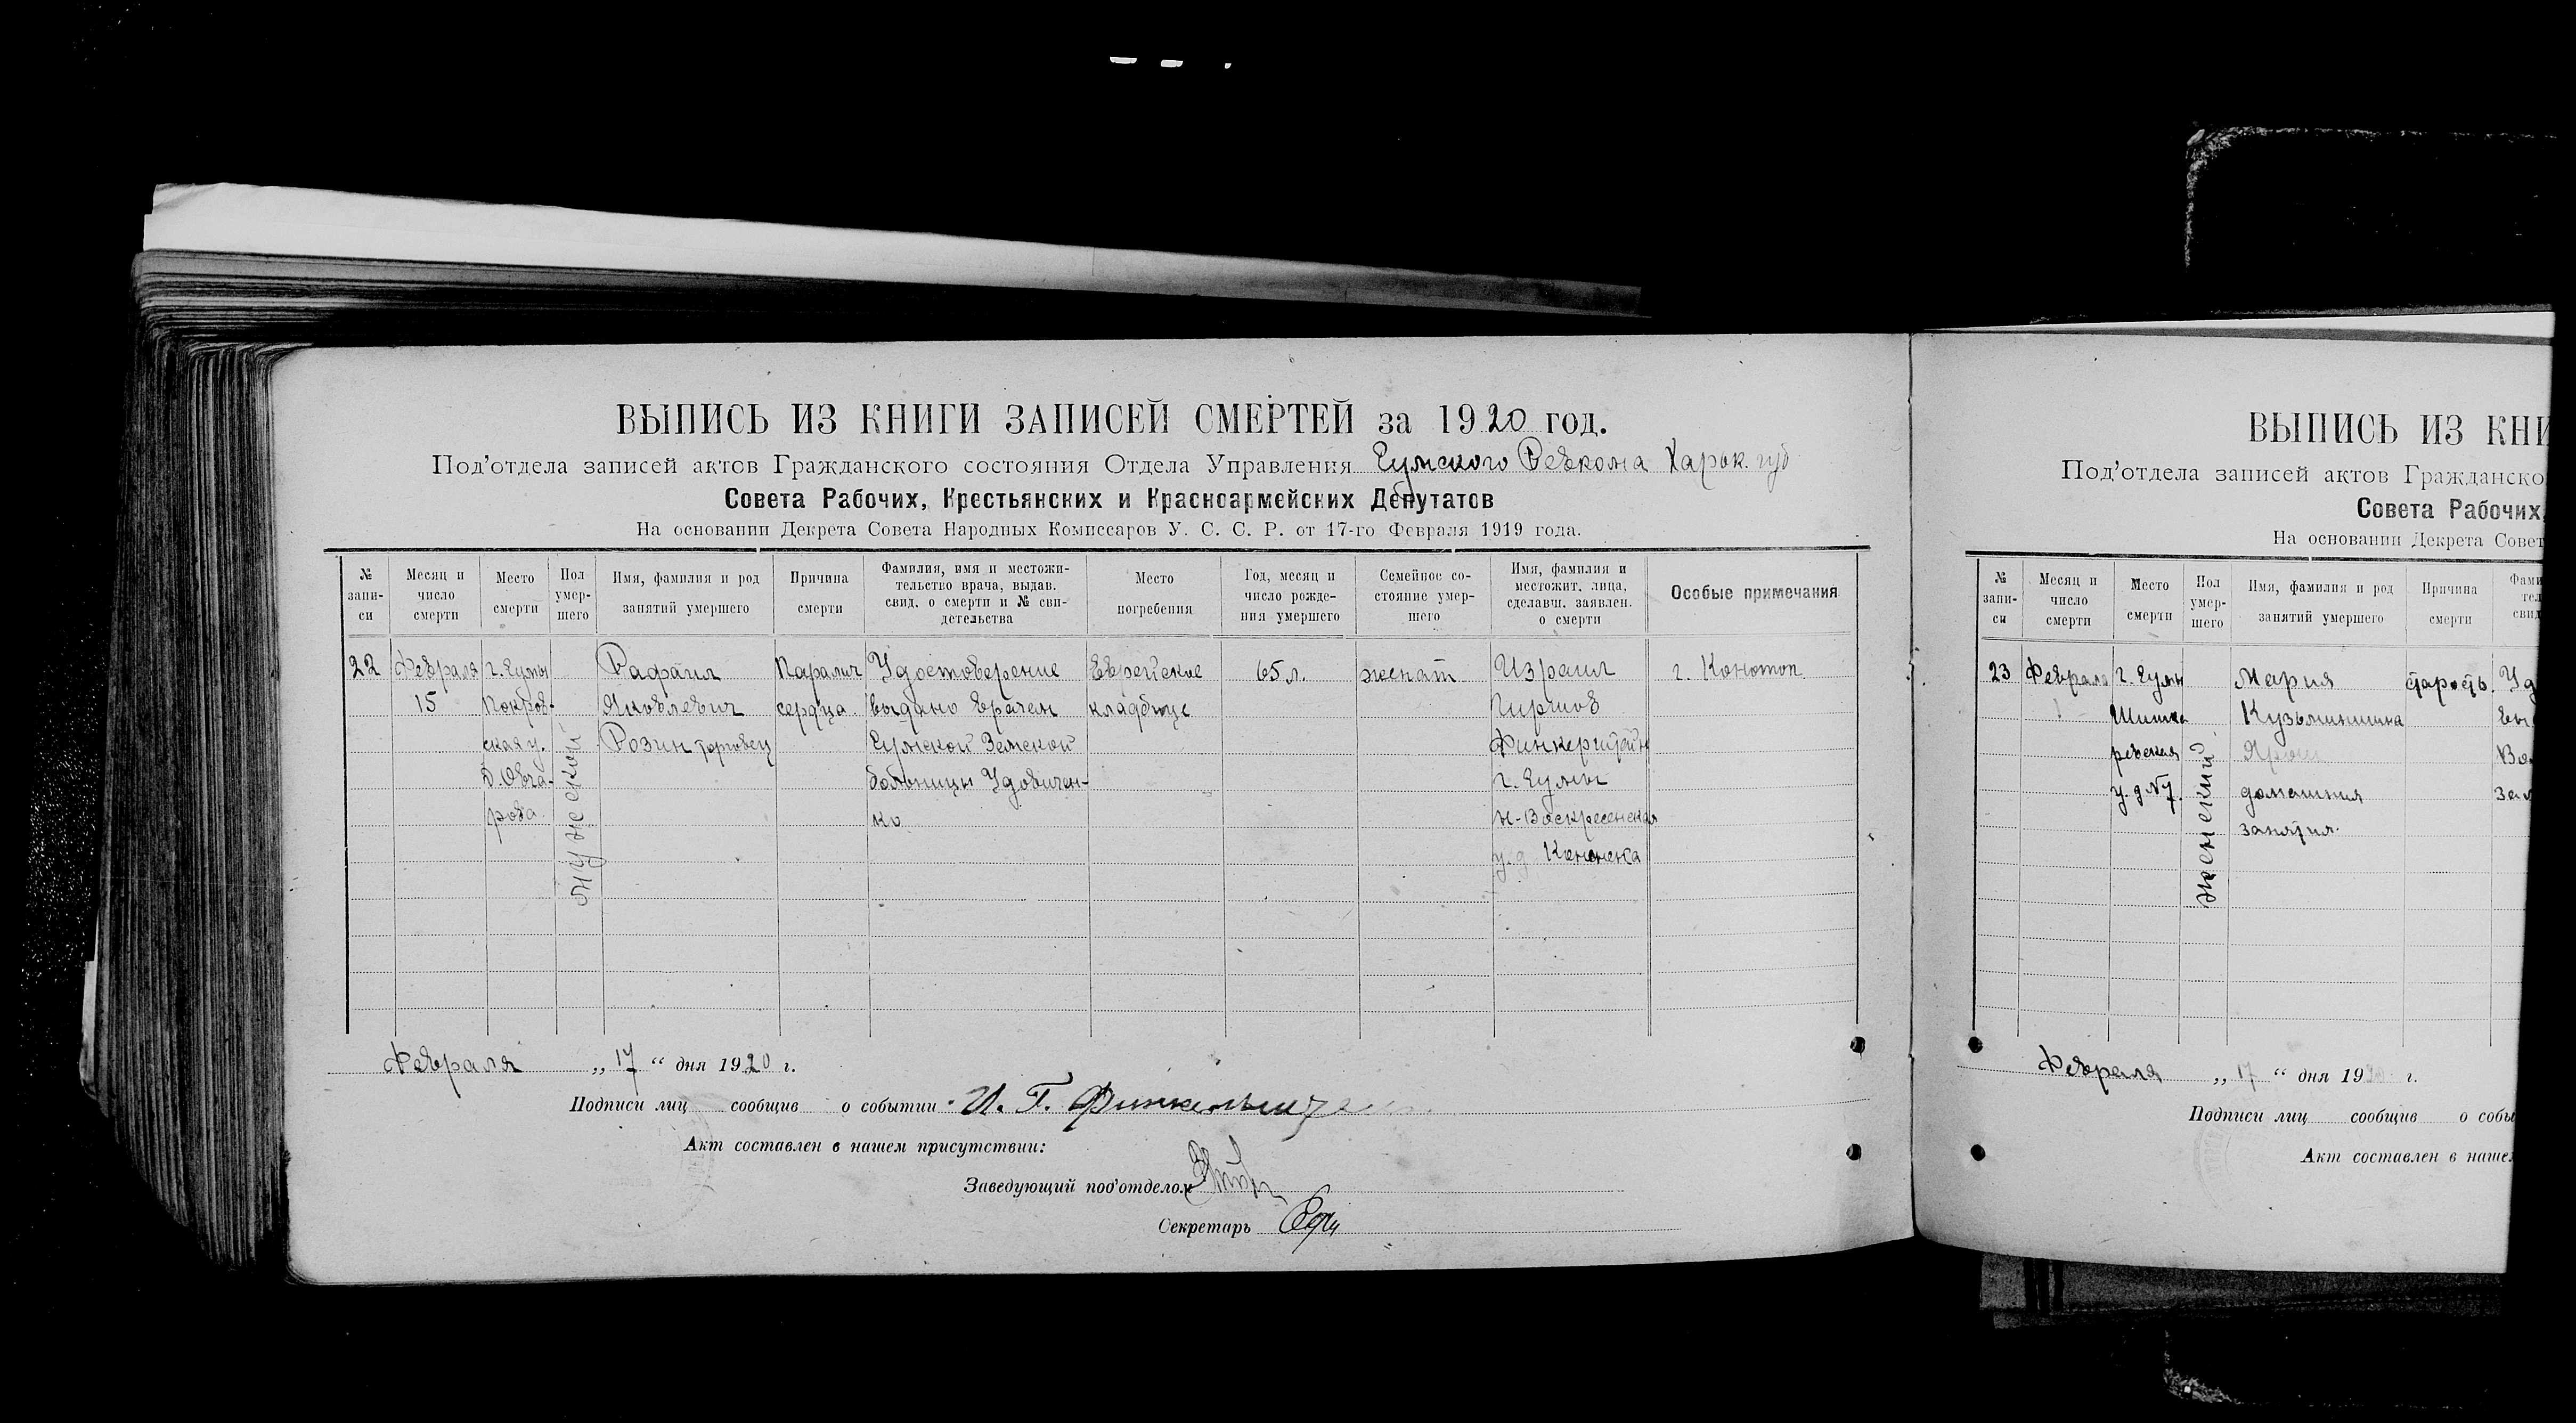 ВЫПИСЬ ИЗ КНИГИ ЗАПИСЕЙ СМЕРТЕЙ за 1920 год.
Под'отдела записей актов Гражданского состояния Отдела Управления Сумского Ревкома Харьк. губ
Совета Рабочих, Крестьянских и Красноармейских Депутатов
На основании Декрета Совета Народных Комиссаров У. С. С. Р. от 17-го Февраля 1919 года.
№ запи-си
Месяц и число смерти
Место смерти
Пол умер-шего
Имя, фамилия и род занятий умершего
Причина смерти
Фамилия, имя и местожи-тельство врача, выдав. свид. о смерти и № сви-детельства
Место погребения
Год, месяц и число рожде-ния умершего
Семейное со-стояние умер-шего
Имя, фамилия и местожит. лица, сделавш. заявлен. о смерти
Особые примечания
22
Февраля
15
г. Сумы
Покров-
ская у.
д. Овча-
рова
мужской
Рафаил
Яковлевич
Розин торговец
Паралич
сердца.
Удостоверение
выдано врачем
Сумской Земской
больницы Удовичен-
ко
Еврейское
кладбище
65 л.
женат
Израил
Гиршов
Финкерштейн
г. Сумы
Н-Воскресенская
у. д.
г. Конотоп
Февраля „ 17 “ дня 1920 г.
Подписи лиц сообщив о событии И. Г.
Акт составлен в нашем присутствии:
Заведующий под'отделом
Секретарь
ВЫПИСЬ ИЗ КНИ
Под'отдела записей актов Гражданско
Совета Рабочих,
На основании Декрета Совет
№ запи-си
Месяц и число смерти
Место смерти
Пол умер-шего
Имя, фамилия и род занятий умершего
Причина смерти
Фами
тел
свид
23
Февраля
г. Сумы
Шишка
ревская
у. д №7.
женский
Мария
Кузьминишна
домашния
занятия.
старость.
Уд
вы
Во
Зем
Февраля „ 17 “ дня 19 г.
Подписи лиц сообщив о собы
Акт составлен в наше